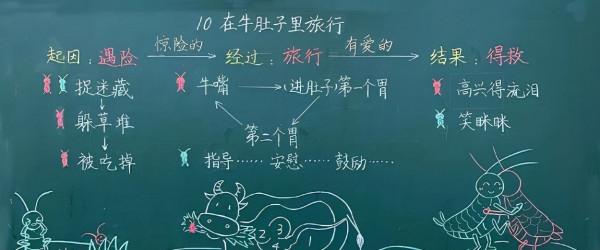 10 在牛肚子里旅行
起因：遇险 惊险的 经过：旅行 有爱的 结果：得救
捉迷藏 牛嘴 (进肚子)第一个胃 高兴得流泪
躲草堆 第二个胃 笑眯眯
被吃掉 指导…… 安慰…… 鼓励……
1 2 3 4